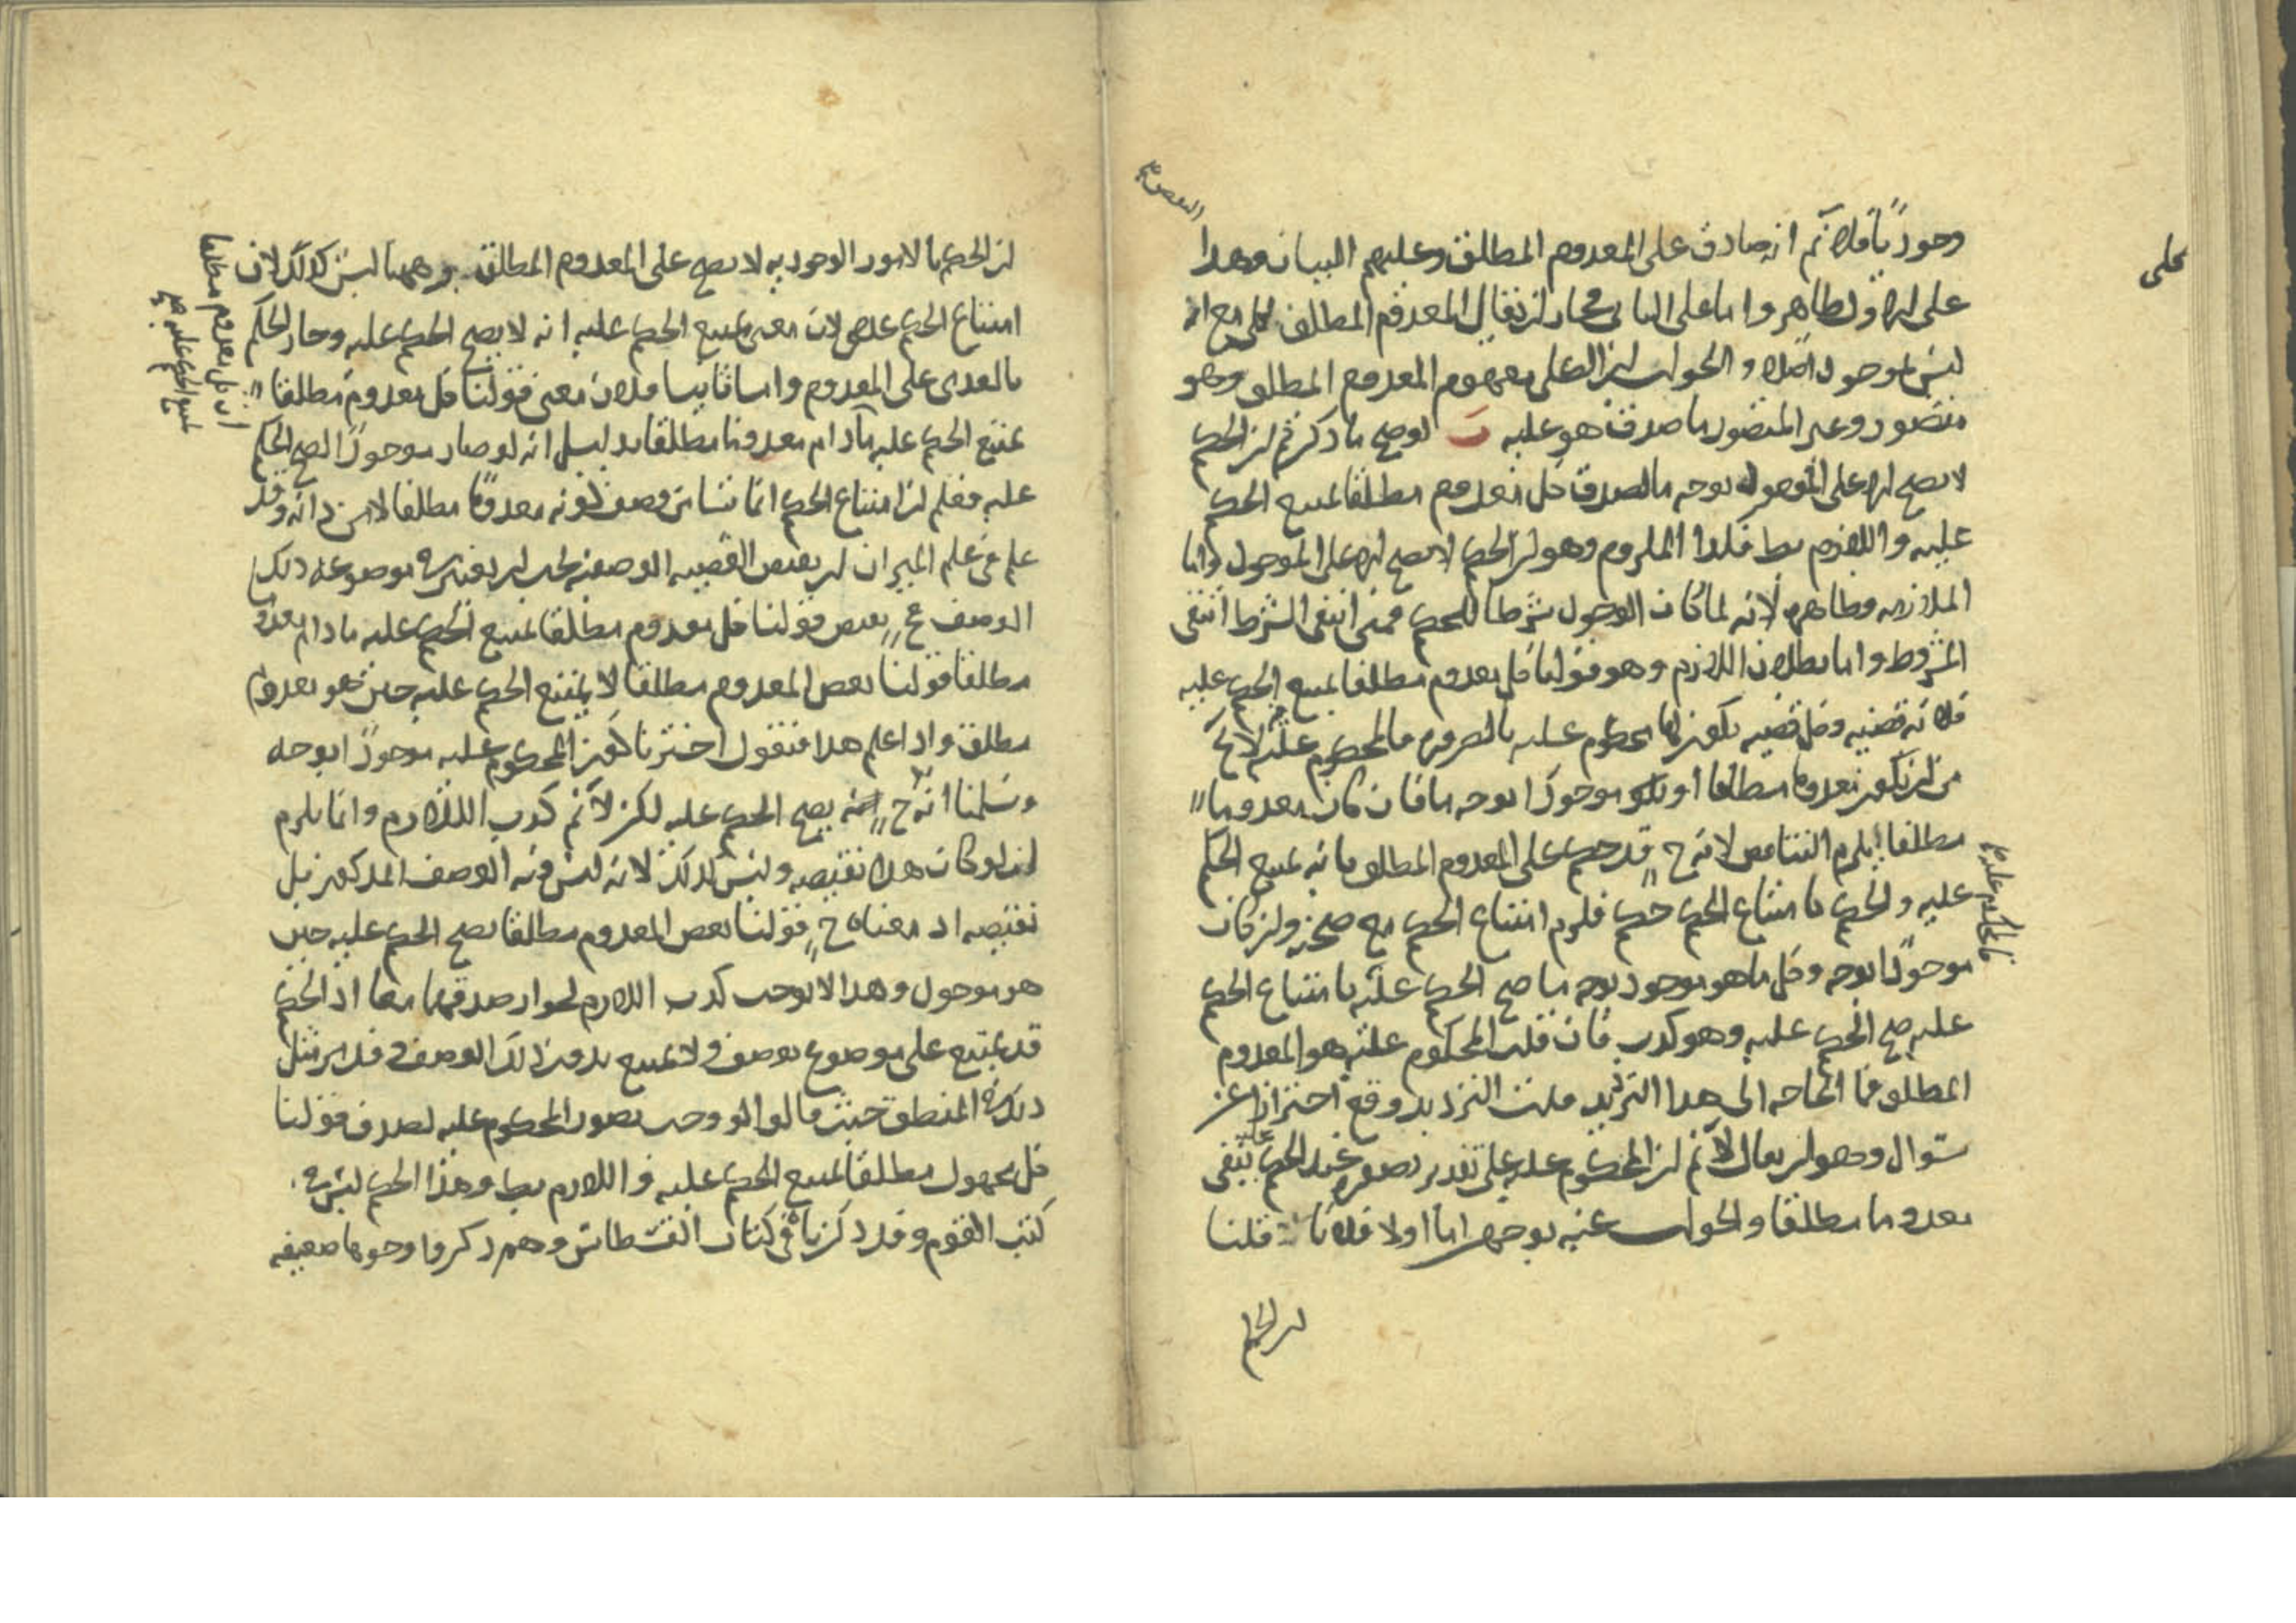 وجوديًا فلا نم انه صادق على المعدوم المطلق وعليهم البيان وهذا
على الاول ظاهر واما على الثاني فجاز ان يقال المعدوم المطلق مع انه
ليس بموجود اصلا والجواب ان على مفهوم المعدوم المطلق وهو
متصور وغير المتصور ما صدق هو عليه ت لو صح ما ذكرتم ان الحكم
لا يصح الا على الموجود بوجه ما لصدق كل معدوم مطلقا يمتنع الحكم
عليه واللازم بط فكذا الملزوم وهو ان الحكم لا يصح الا على الموجود واما
الملازمة فظاهرة لانه لما كان الوجود شرطا للحكم فمتى انتفى الشرط انتفى
المشروط واما بطلان اللازم وهو قولنا كل معدوم مطلقا يمتنع الحكم عليه
فلانه قضية وكل قضية يكون لها محكوم عليه بالضرورة فالمحكوم عليه لا يخ
من ان يكون معدوما مطلقا او يكون موجودا بوجه ما فان كان معدوما
مطلقا يلزم التناقض لانه ح قد حكم على المعدوم المطلق بانه يمتنع الحكم
عليه والحكم بامتناع الحكم حكم فلزم امتناع الحكم مع صحته وان كان
موجودا بوجه وكل ما هو موجود بوجه ما صح الحكم عليه بامتناع الحكم
عليه صح الحكم عليه وهو كذب فان قلت المحكوم عليه هو المعدوم
المطلق فما الحاجة الى هذا الترديد قلت الترديد وقع احترازا عن
سؤال وهو ان يقال لا نم ان المحكوم عليه على تقدير تصوره عند الحكم عليه يبقى
معدوما مطلقا والجواب عنه بوجهين اما اولا فلانا قلنا
ان الحكم
ان الحكم بالامور الوجودية لا يصح على المعدوم المطلق وههنا ليس كذلك لان
امتناع الحكم عدمي لان معنى يمتنع الحكم عليه انه لا يصح الحكم عليه وجاز الحكم
بالعدمي على المعدوم واما ثانيا فلان معنى قولنا كل معدوم مطلقا
يمتنع الحكم عليه ما دام معدوما مطلقا بدليل انه لو صار موجودا لصح الحكم
عليه فعلم ان امتناع الحكم انما نشا من وصف كونه معدوما مطلقا لا من ذاته وقد
علم في علم الميزان ان نقيض القضية الوصفية يجب ان يعتبر في موضوعه ذلك
الوصف فح نقيض قولنا كل معدوم مطلقا يمتنع الحكم عليه ما دام معدوما
مطلقا قولنا بعض المعدوم مطلقا لا يمتنع الحكم عليه حين هو معدوم
مطلق واذا علم هذا فنقول اخترنا كون المحكوم عليه موجودا بوجه
وسلمنا انه ح يصح الحكم عليه لكن لا نم كذب اللازم وانما يلزم
ان لو كان هذا نقيضه وليس كذلك لانه ليس فيه الوصف المذكور بل
نقيضه اذ معناه ح قولنا بعض المعدوم مطلقا يصح الحكم عليه حين
هو موجود وهذا لا يوجب كذب اللازم لجواز صدقهما معا اذ الحكم
قد يمتنع على موضوع بوصف ولا يمتنع بدون ذلك الوصف وقد مر مثل
ذلك في المنطق حيث قالوا لو وجب تصور المحكوم عليه لصدق قولنا
كل مجهول مطلقا يمتنع الحكم عليه واللازم بط وهذا الحكم ليس في
كتب القوم وقد ذكرناه في كتاب القسطاس وهم ذكروا وجوها ضعيفة
ان كل معدوم مطلقا
يمتنع الحكم عليه صح